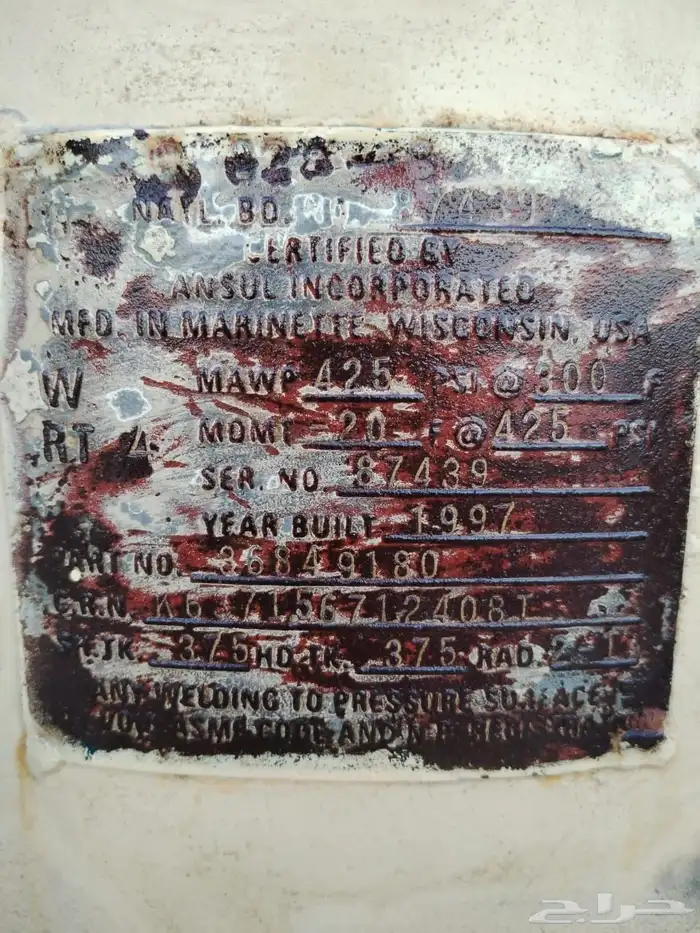 NAT'L. BD. NO. 87439
CERTIFIED BY
ANSUL INCORPORATED
MFD. IN MARINETTE, WISCONSIN, USA
W MAWP 425 PSI @ 300 F
RT 4 MDMT -20 F @ 425 PSI
SER. NO. 87439
YEAR BUILT 1997
PART NO. 36849180
C.R.N.
SH. TK. .375 HD. TK. .375 RAD.
ANY WELDING TO PRESSURE SURFACES
ASME CODE AND
حراج